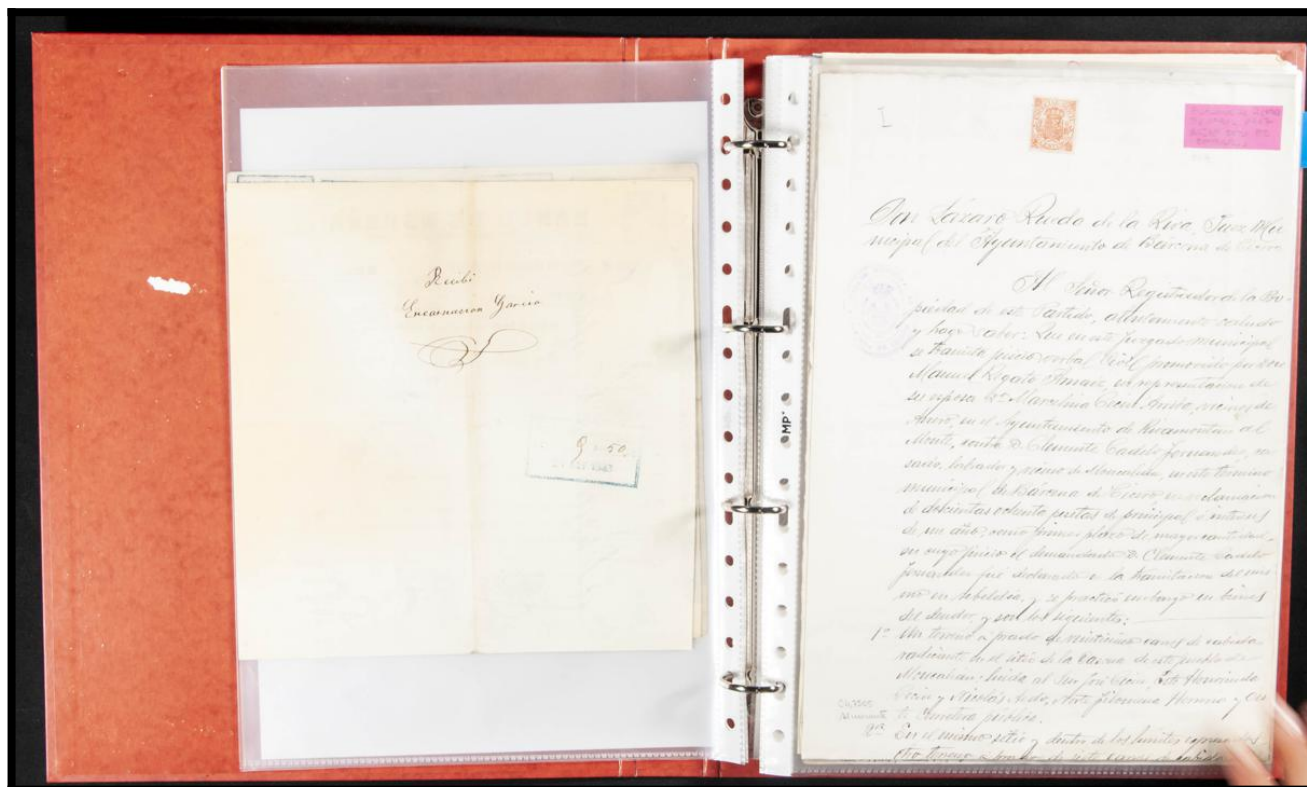 Recibí
Encarnacion Garcia
9 50
MP
I
Don Lázaro Ruedo de la Riva, Juez Mu
nicipal del Ayuntamiento de Bárcena de Cicero
Al Señor Registrador de la Pro-
piedad de este Partido, atentamente saludo
y hago saber: Que en este juzgado municipal
se tramita juicio verbal civil promovido por Don
Manuel Regato en representacion de
su esposa Dª Marcelina vecinos de
Anero, en el Ayuntamiento de Rivamontan al
Monte, contra D. Clemente Fernandez, ca
sado, labrador y vecino de Moncalian, en este termino
municipal de Bárcena de Cicero en reclamacion
de doscientas ochenta pesetas de principal é intereses
de un año, como primer plazo de mayor cantidad,
en cuyo juicio el demandado D. Clemente
Fernandez fué declarado a la tramitacion del mis
mo en rebeldia, y se practicó embargo en bienes
del deudor, y son los siguientes:
1º Un terreno a prado de veinticinco carros de cabida
radicante en el sitio de la de este pueblo de
Moncalian: linda al Sur José Este
y Nicolás Norte Filomena Moreno y Oes
te carretera pública.
2º En el mismo sitio y dentro de los limites expresados
otro terreno a prado de siete carros de cabida